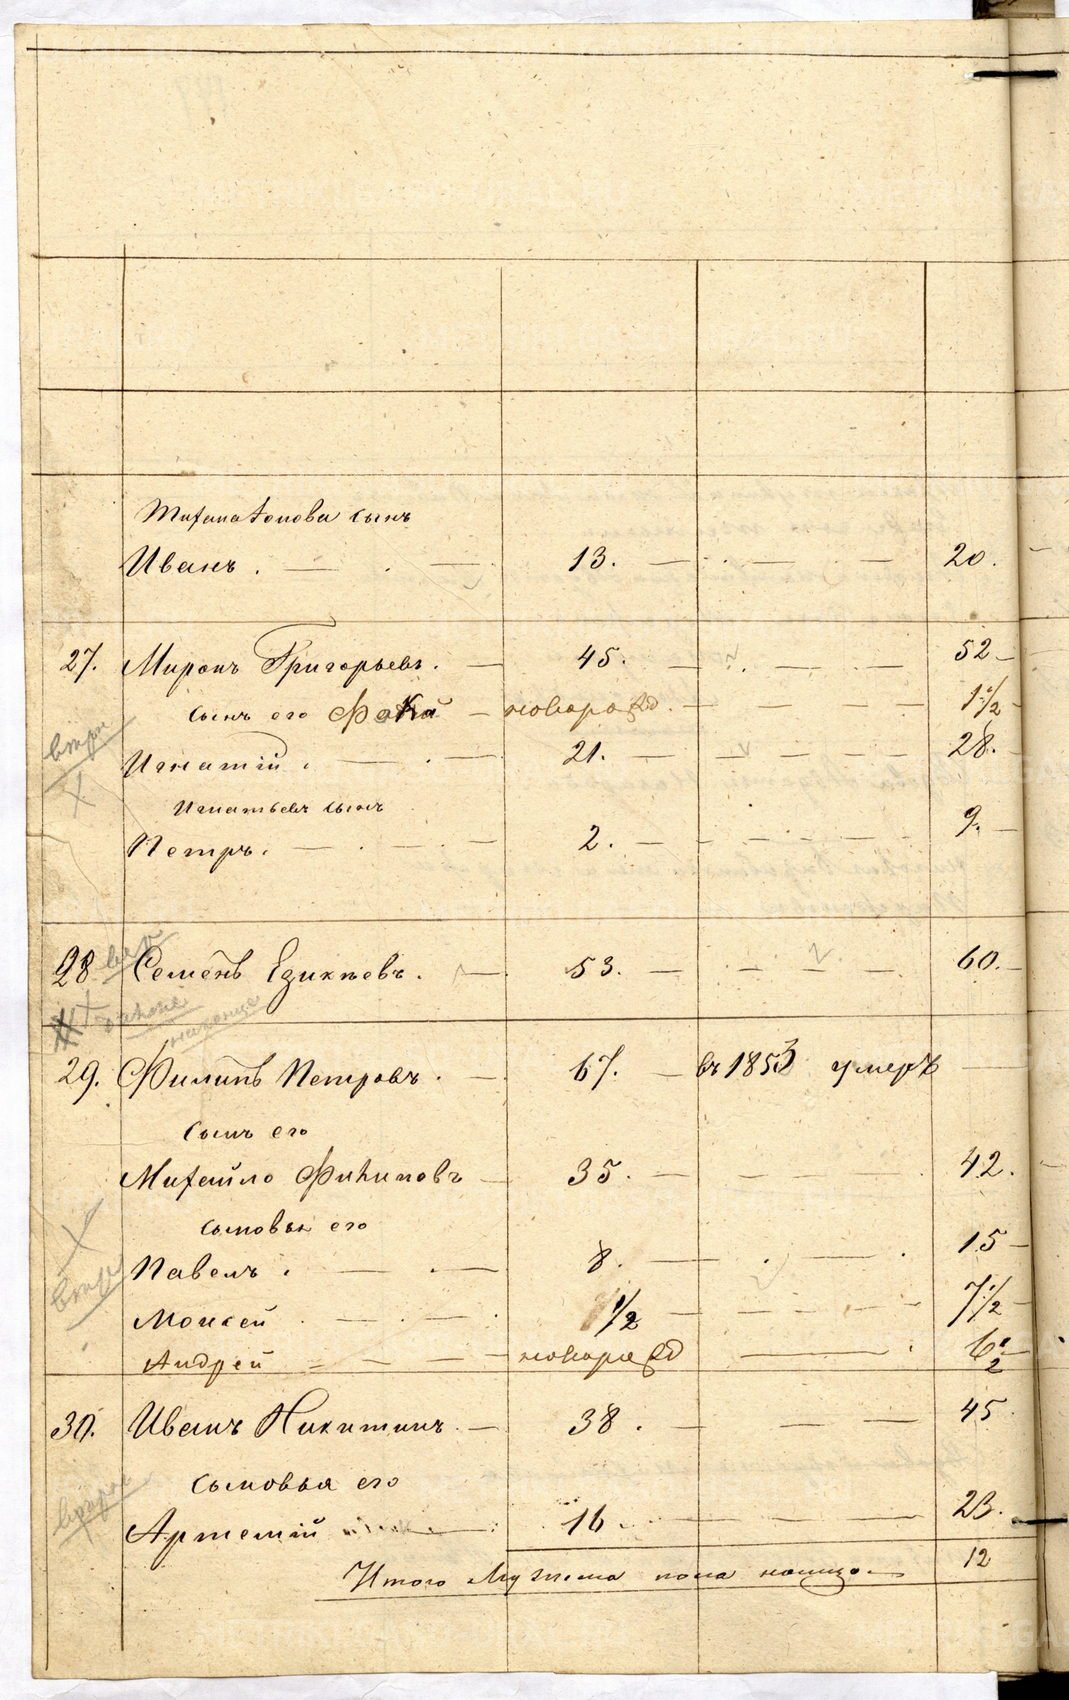 сынъ
Иванъ. 13. 20.
27. Миронъ Григорьевъ. 45. 52
сынъ его Фока новорожд. 1 1/2
Игнатій. 21. 28.
Игнатьевъ сынъ
Петръ. 2. 9.
28 Семенъ Езикѣевъ. 53. 60.
29. Филипъ Петровъ. 67. въ 1853 умеръ
сынъ его
Михайло Филиповъ 35. 42.
сыновья его
Павелъ. 8. 15
Моисей 1/2 7 1/2
Андрей новорожд 6 1/2
30. Иванъ Никитинъ. 38. 45
сыновья его
Артемій 16. 23.
Итого Мужеска пола налицо 12